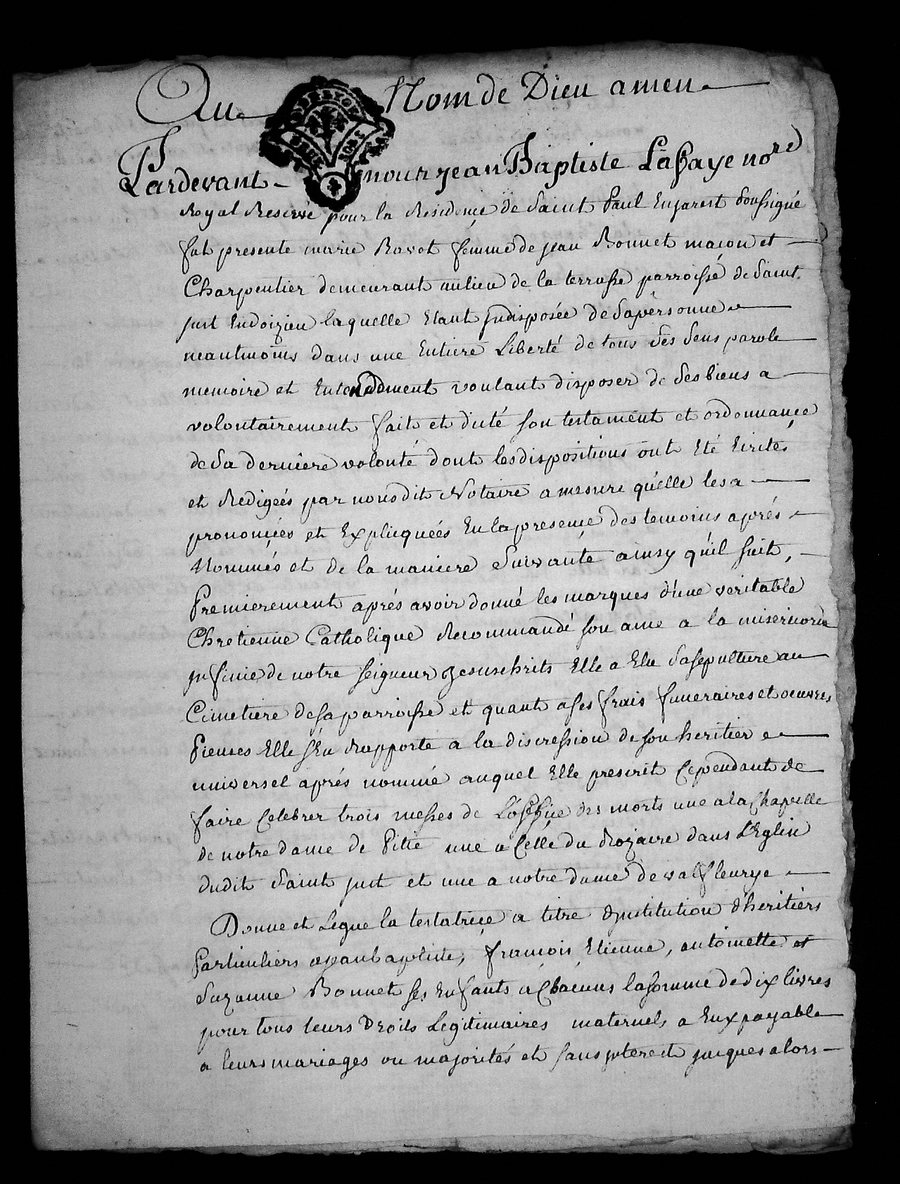 Au Nom de Dieu amen
Pardevant nous jean Baptiste Laffaye no.re
Royal Reservé pour la Residence de Saint Paul Enjarest soussigné
fut presente marie Ravot femme de jean Bonnet maçon et
Charpentier demeurant au lieu de la terrasse parroisse de Saint
just Endoizieu laquelle Etant jndisposée de Sa personne
neantmoins dans une Entiere Liberté de tous Ses Sens parole
memoire et Entendement voulant disposer de Ses biens a
volontairement fait et dicté son testament et ordonnance
de Sa derniere volonté dont les dispositions ont Eté Ecrites
et Redigées par nousdit Notaire a mesure qu'elle les a
prononcées et Explicquées En la presence des temoins aprés
Nommés et de la maniere Suivante ainsy qu'il suit,
Premierement aprés avoir donné les marques d'une veritable
Chretienne Catholique Recommandé son ame a la misericorde
jnfinie de notre seigneur Jesuschrits Elle a Elu Sa sepulture au
Cimetiere de sa parroisse et quant a ses frais funeraires et oeuvres
Pieuses Elle s'en rapporte a la discression de son heritier
universel aprés nommé auquel Elle prescrit Cependant de
faire Celebrer trois messes de L'office des morts une a la Chapelle
de notre dame de Pitié une a Celle du Rozaire dans L'Eglise
dudit Saint just et une a notre dame de valfleurye
Donne et Legue la testatrice a titre d'institution d'heritiers
Particuliers a jean baptiste, francois, Etienne, antoinette et
Suzanne Bonnet ses Enfants a Chacuns la somme de dix livres
pour tous leurs Droits Legitimaires maternels a Eux payable
a leurs mariages ou majorités et sans jnterets jusques alors